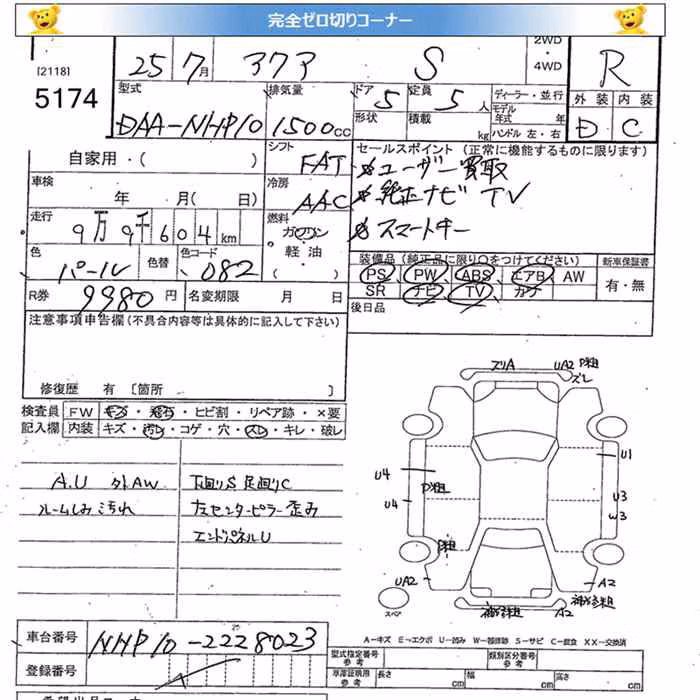 完全ゼロ切りコーナー
[2118]
25 7月 アクア S 2WD ・ 4WD R
5174
型式 排気量 ドア 定員 ディーラー・並行 外装 内装
DAA-NHP10 1500cc 5 5人 モデル年式 年 D C
形状 積載 kg ハンドル 左・右
自家用・( ) シフト FAT セールスポイント (正常に機能するものに限ります)
ユーザー買取
車検 年 月(日) 冷房 AAC 純正ナビ TV
走行 9万9千604km 燃料 ガソリン・軽油・ スマートキー
色 パール 色替 色コード 082
装備品(純正品に限り○をつけてください) 新車保証書
PS PW ABS エアB AW 有・無
SR ナビ TV カワ
R券 9980円 名変期限 月 日 後日品
注意事項申告欄(不具合内容等は具体的に記入して下さい)
修復歴 有 〔箇所 〕
検査員 FW キズ・飛石・ヒビ割・リペア跡・×要
記入欄 内装 キズ・汚レ・コゲ・穴・スレ・キレ・破レ
A.U 外AW 下回りS 足回りC
ルームしみ汚れ 左センターピラー歪み
エンドパネルU
ズリA UA2 P粗 ズレ
U1
U4 P粗
U4 U3
W3
P粗
UA2 A2
補修粗 補修粗
スペア
A−キズ E−エクボ U−凹み W−補修跡 S−サビ C−腐食 XX−交換済
車台番号 NHP10-2228023
型式指定番号 参考 類別区分番号 参考
登録番号
車庫証明用 参考 長さ cm 幅 cm 高さ cm